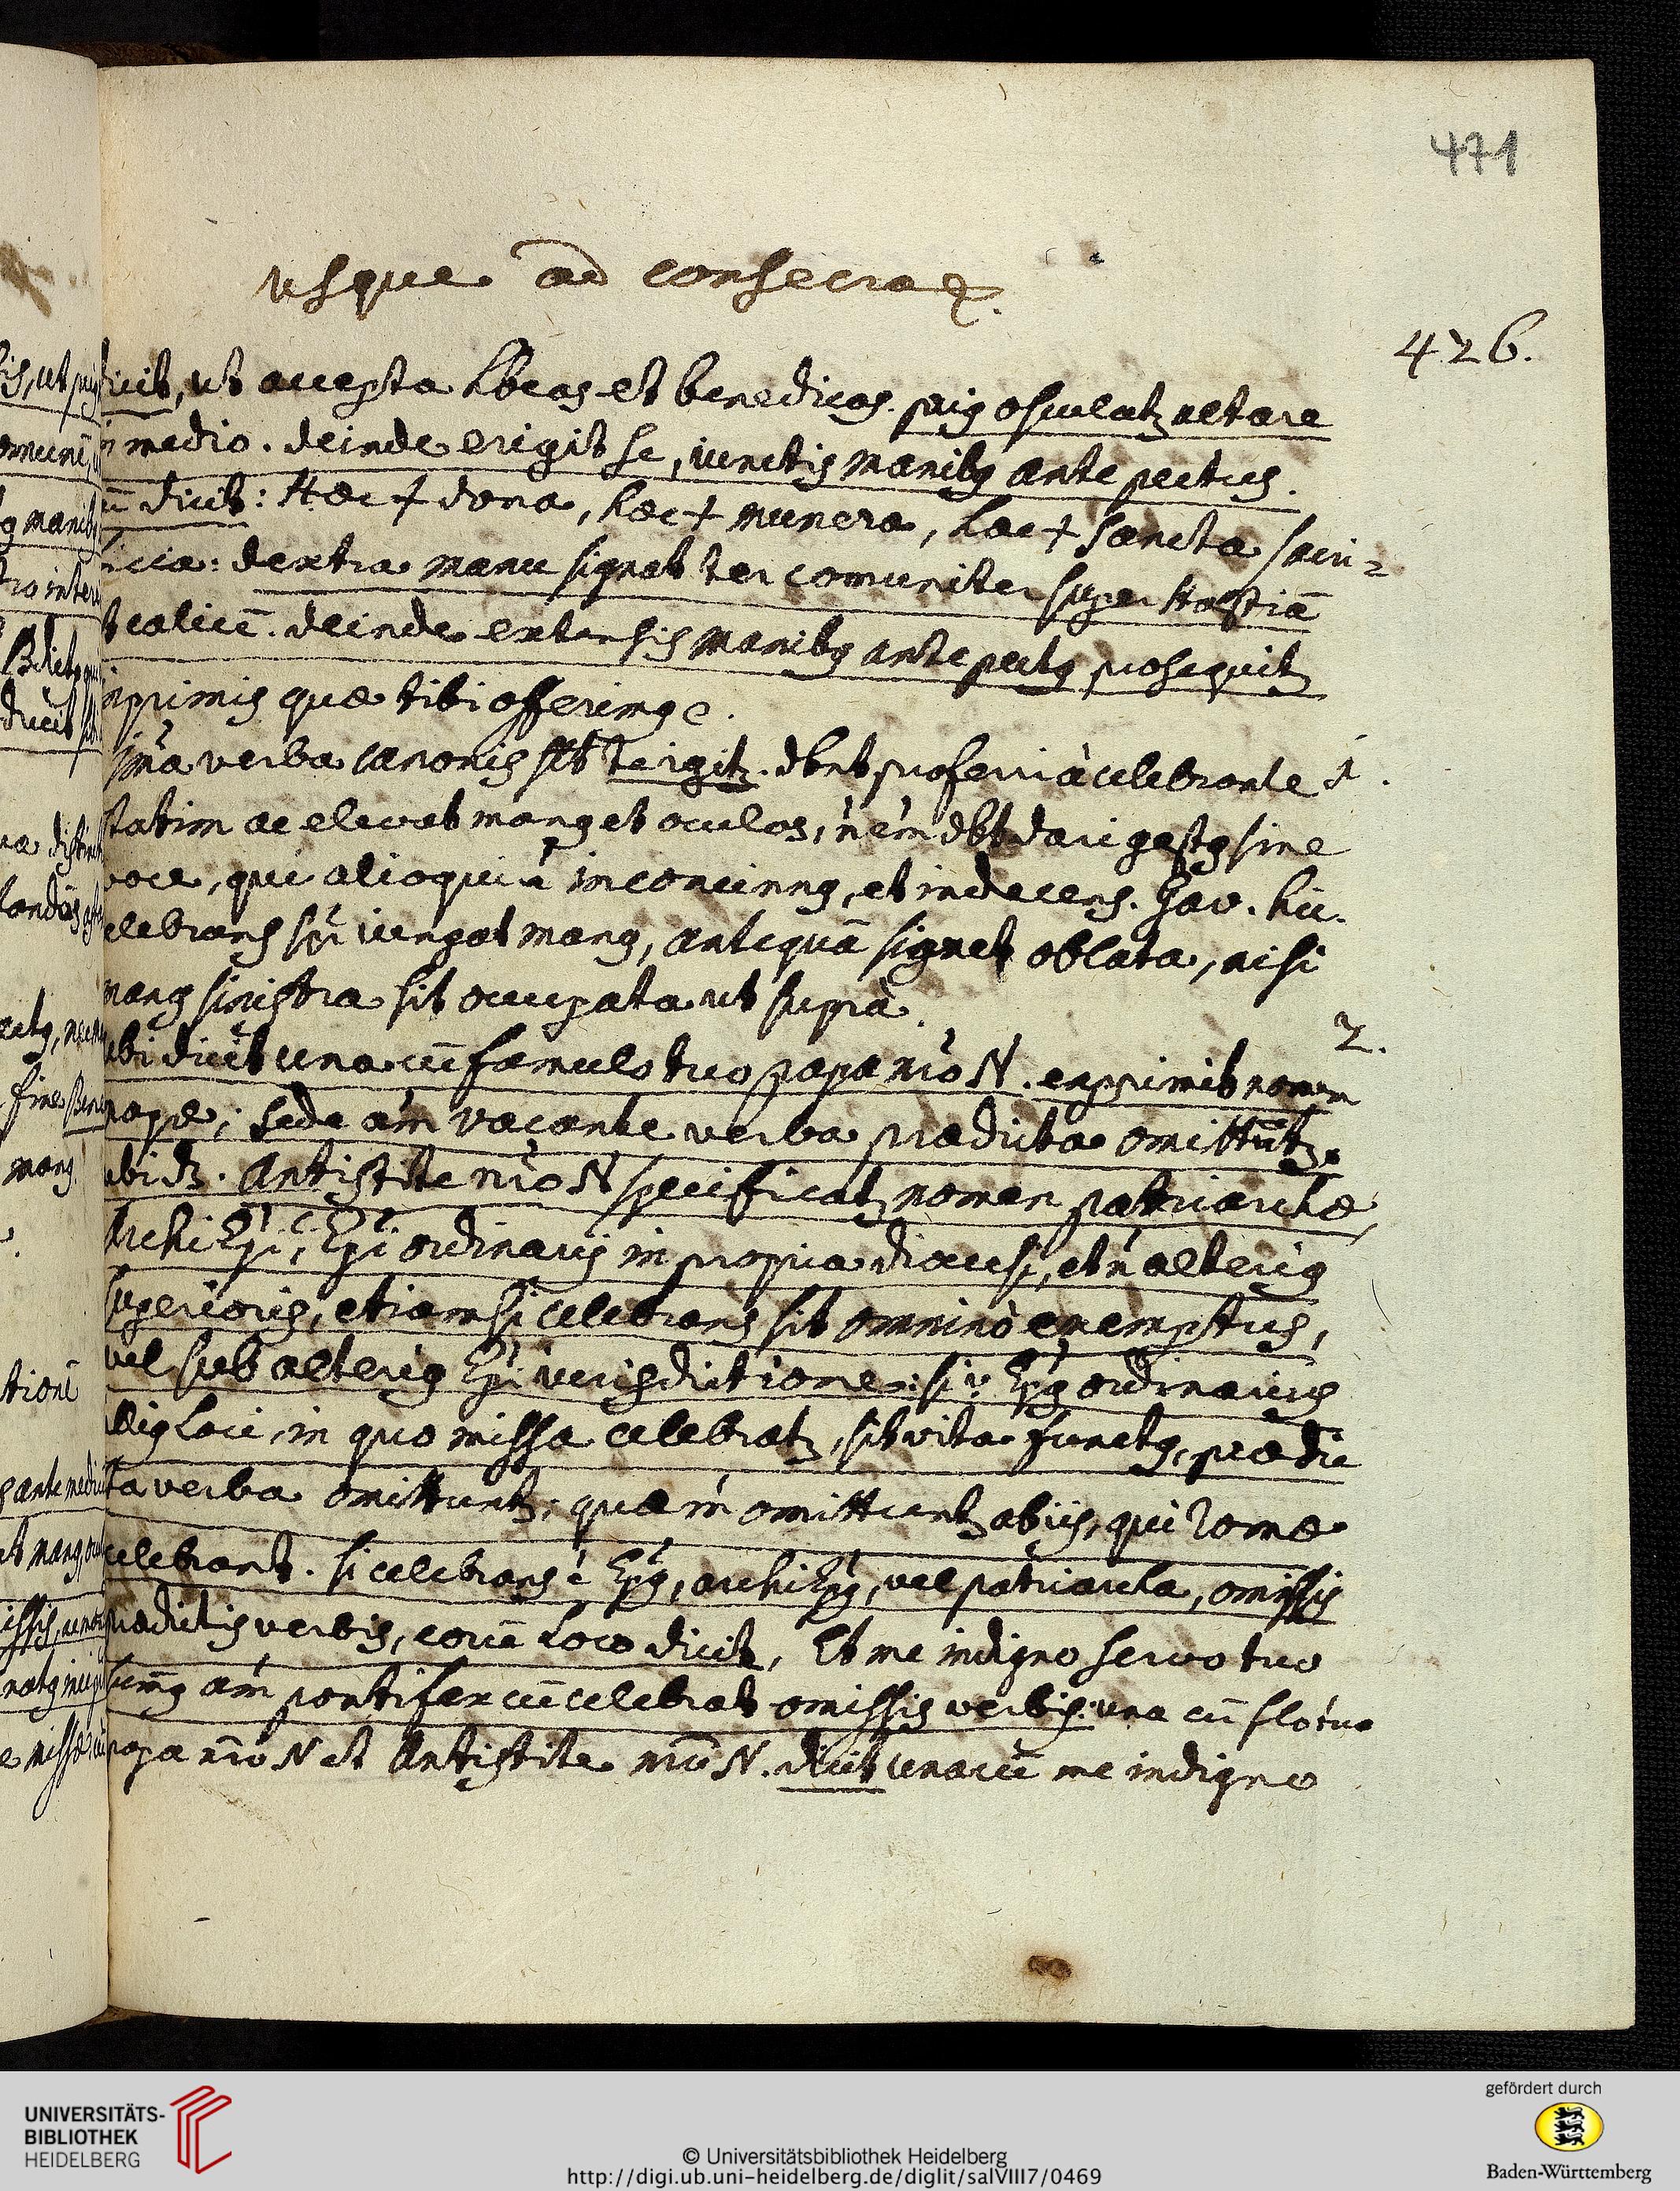 471
usque ad consecraõ.
426.
dicit, ut accepta hbeas et benedicas. priq osculatz altare
in medio. deinde erigit se, iunctis manibq ante pectus.
cū dicit: Haec † dona, haec † munera, haec † sancta sacri=
ficia: dextra manu signat ter comuniter super Hostiā
et calicē. deinde extensis manibq ante pectq prosequitz
inprimis quae tibi offerimq
verba canonis Te igitz. dbnt proferri à celebrante 1.
statim ac elevat manq et oculos, n̄ em̄ dbt dari gestq sine
voce, qui alioqui ē inconcinnq, et indecens. Gav. hic.
celebrans iungat manq, antequā signet oblata, nisi
manq sinistra sit occupata ut suprà.
2.
ubi dicit una cū famulo tuo papa nr̄o N. exprimit nomen
papae; sede am̄ vacante verba praedicta omittūtz.
ubi dr. Antistite nr̄o N specificatz nomen patriarchae,
Archi Epi, Epi ordinarij in propria dioecesi, et n̄ alteriq
superioris, etiamsi celebrans sit omninò exemptus,
vel sub alteriq Epi iurisdictione: si v. Epq ordinarius
illiq loci, in quo missa celebratz, sit vita functq, praedic
ta verba omittuntz; quae m̄ omittuntz ab ijs, qui Romae
celebrant. si celebrans ē Epq, archiEpq, vel patriarcha, omissis
praedictis verbis, eorū loco dicit, Et me indigno servo tuo
sum̄q am̄ pontifex cū celebrat omissis verbis: una cū flo tuo
papa nr̄o N et Antistite nr̄o N. dicit una cū me indigno
UNIVERSITÄTS-
BIBLIOTHEK
HEIDELBERG
© Universitätsbibliothek Heidelberg
http://digi.ub.uni-heidelberg.de/diglit/salVIII7/0469
gefördert durch
Baden-Württemberg